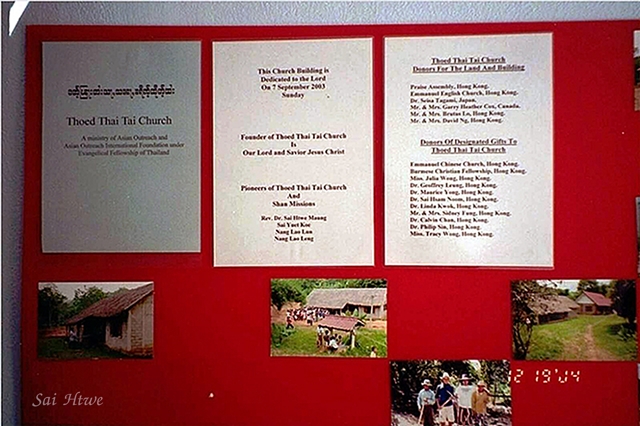 Thoed Thai Tai Church
A ministry of Asian Outreach and
Asian Outreach International Foundation under
Evangelical Fellowship of Thailand
This Church Building is
Dedicated to the Lord
On 7 September 2003
Sunday
Founder of Thoed Thai Tai Church
Is
Our Lord and Savior Jesus Christ
Pioneers of Thoed Thai Tai Church
And
Shan Missions
Rev. Dr. Sai Htwe Maung
Sai Yuet Koe
Nang Lao Lun
Nang Lao Leng
Thoed Thai Tai Church
Donors For The Land And Building
Praise Assembly, Hong Kong.
Emmanuel English Church, Hong Kong.
Dr. Seina Tagami, Japan.
Mr. & Mrs. Garry Heather Cox, Canada.
Mr. & Mrs. Brutus Lo, Hong Kong.
Mr. & Mrs. David Ng, Hong Kong.
Donors Of Designated Gifts To
Thoed Thai Tai Church
Emmanuel Chinese Church, Hong Kong.
Burmese Christian Fellowship, Hong Kong.
Miss. Julia Wong, Hong Kong.
Dr. Geoffrey Leung, Hong Kong.
Dr. Maurice Yong, Hong Kong.
Dr. Sai Hsam Noom, Hong Kong.
Dr. Linda Kwok, Hong Kong.
Mr. & Mrs. Sidney Fung, Hong Kong.
Dr. Calvin Chan, Hong Kong.
Dr. Philip Sin, Hong Kong.
Miss. Tracy Wong, Hong Kong.
2 19'04
Sai Htwe